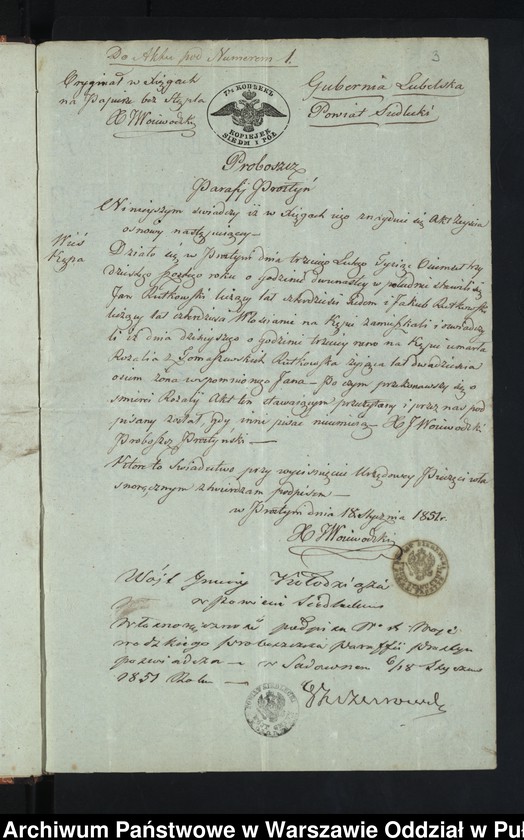 Do Aktu pod Numerem 1.
3
Oryginał w Księgach
na Papierze bez Stępla
X J Woiewodzki
7½ КОПѢЕКЪ
KOPIEJEK
SIEDM I PÓŁ
Gubernia Lubelska
Powiat Siedlecki
Proboszcz
Parafij Prostyń
Ninieyszym świadczy iż w Księgach iego znayduie się Akt Zeyścia
osnowy następuiącey
Wieś
Kępa
Działo się w Prostyni dnia trzeciego Lutego Tysiąc Ośmset trzy
dziestego roku o godzinie dwunastey w południe stawili się
Jan Rutkowski liczący lat czterdzieści siedem i Jakub Rutkowski
liczący lat Włościanie na Kępie zamieszkali i oświadczy
li iż dnia dzisieyszego o godzinie trzeciey rano na Kępie umarła
Rozalia z Tomaszewskich Rutkowska żyiąca lat dwadzieścia
osiem żona wspomnionego Jana – Po czym przekonawszy się o
śmierci Rozalij Akt ten stawaiącym przeczytany i przez nas pod
pisany został, gdyż inni pisać nieumieią – X J Woiewodzki
Proboszcz Prostyński
Które to Świadectwo przy wyciśnięciu Urzędowey Pieczęci
własnoręcznym stwierdzam podpisem
w Prostyni dnia 18 Stycznia 1851 r.
X J Woiewodzki
Wójt Gminy
w Powiecie Siedleckim
Własnoręczność podpisu Woje
wodzkiego Proboszcza Paraffii Prostyn
poswiadcza – w Sadownem 6/18 Stycznia
1851 Roku
Archiwum Państwowe w Warszawie Oddział w Puł